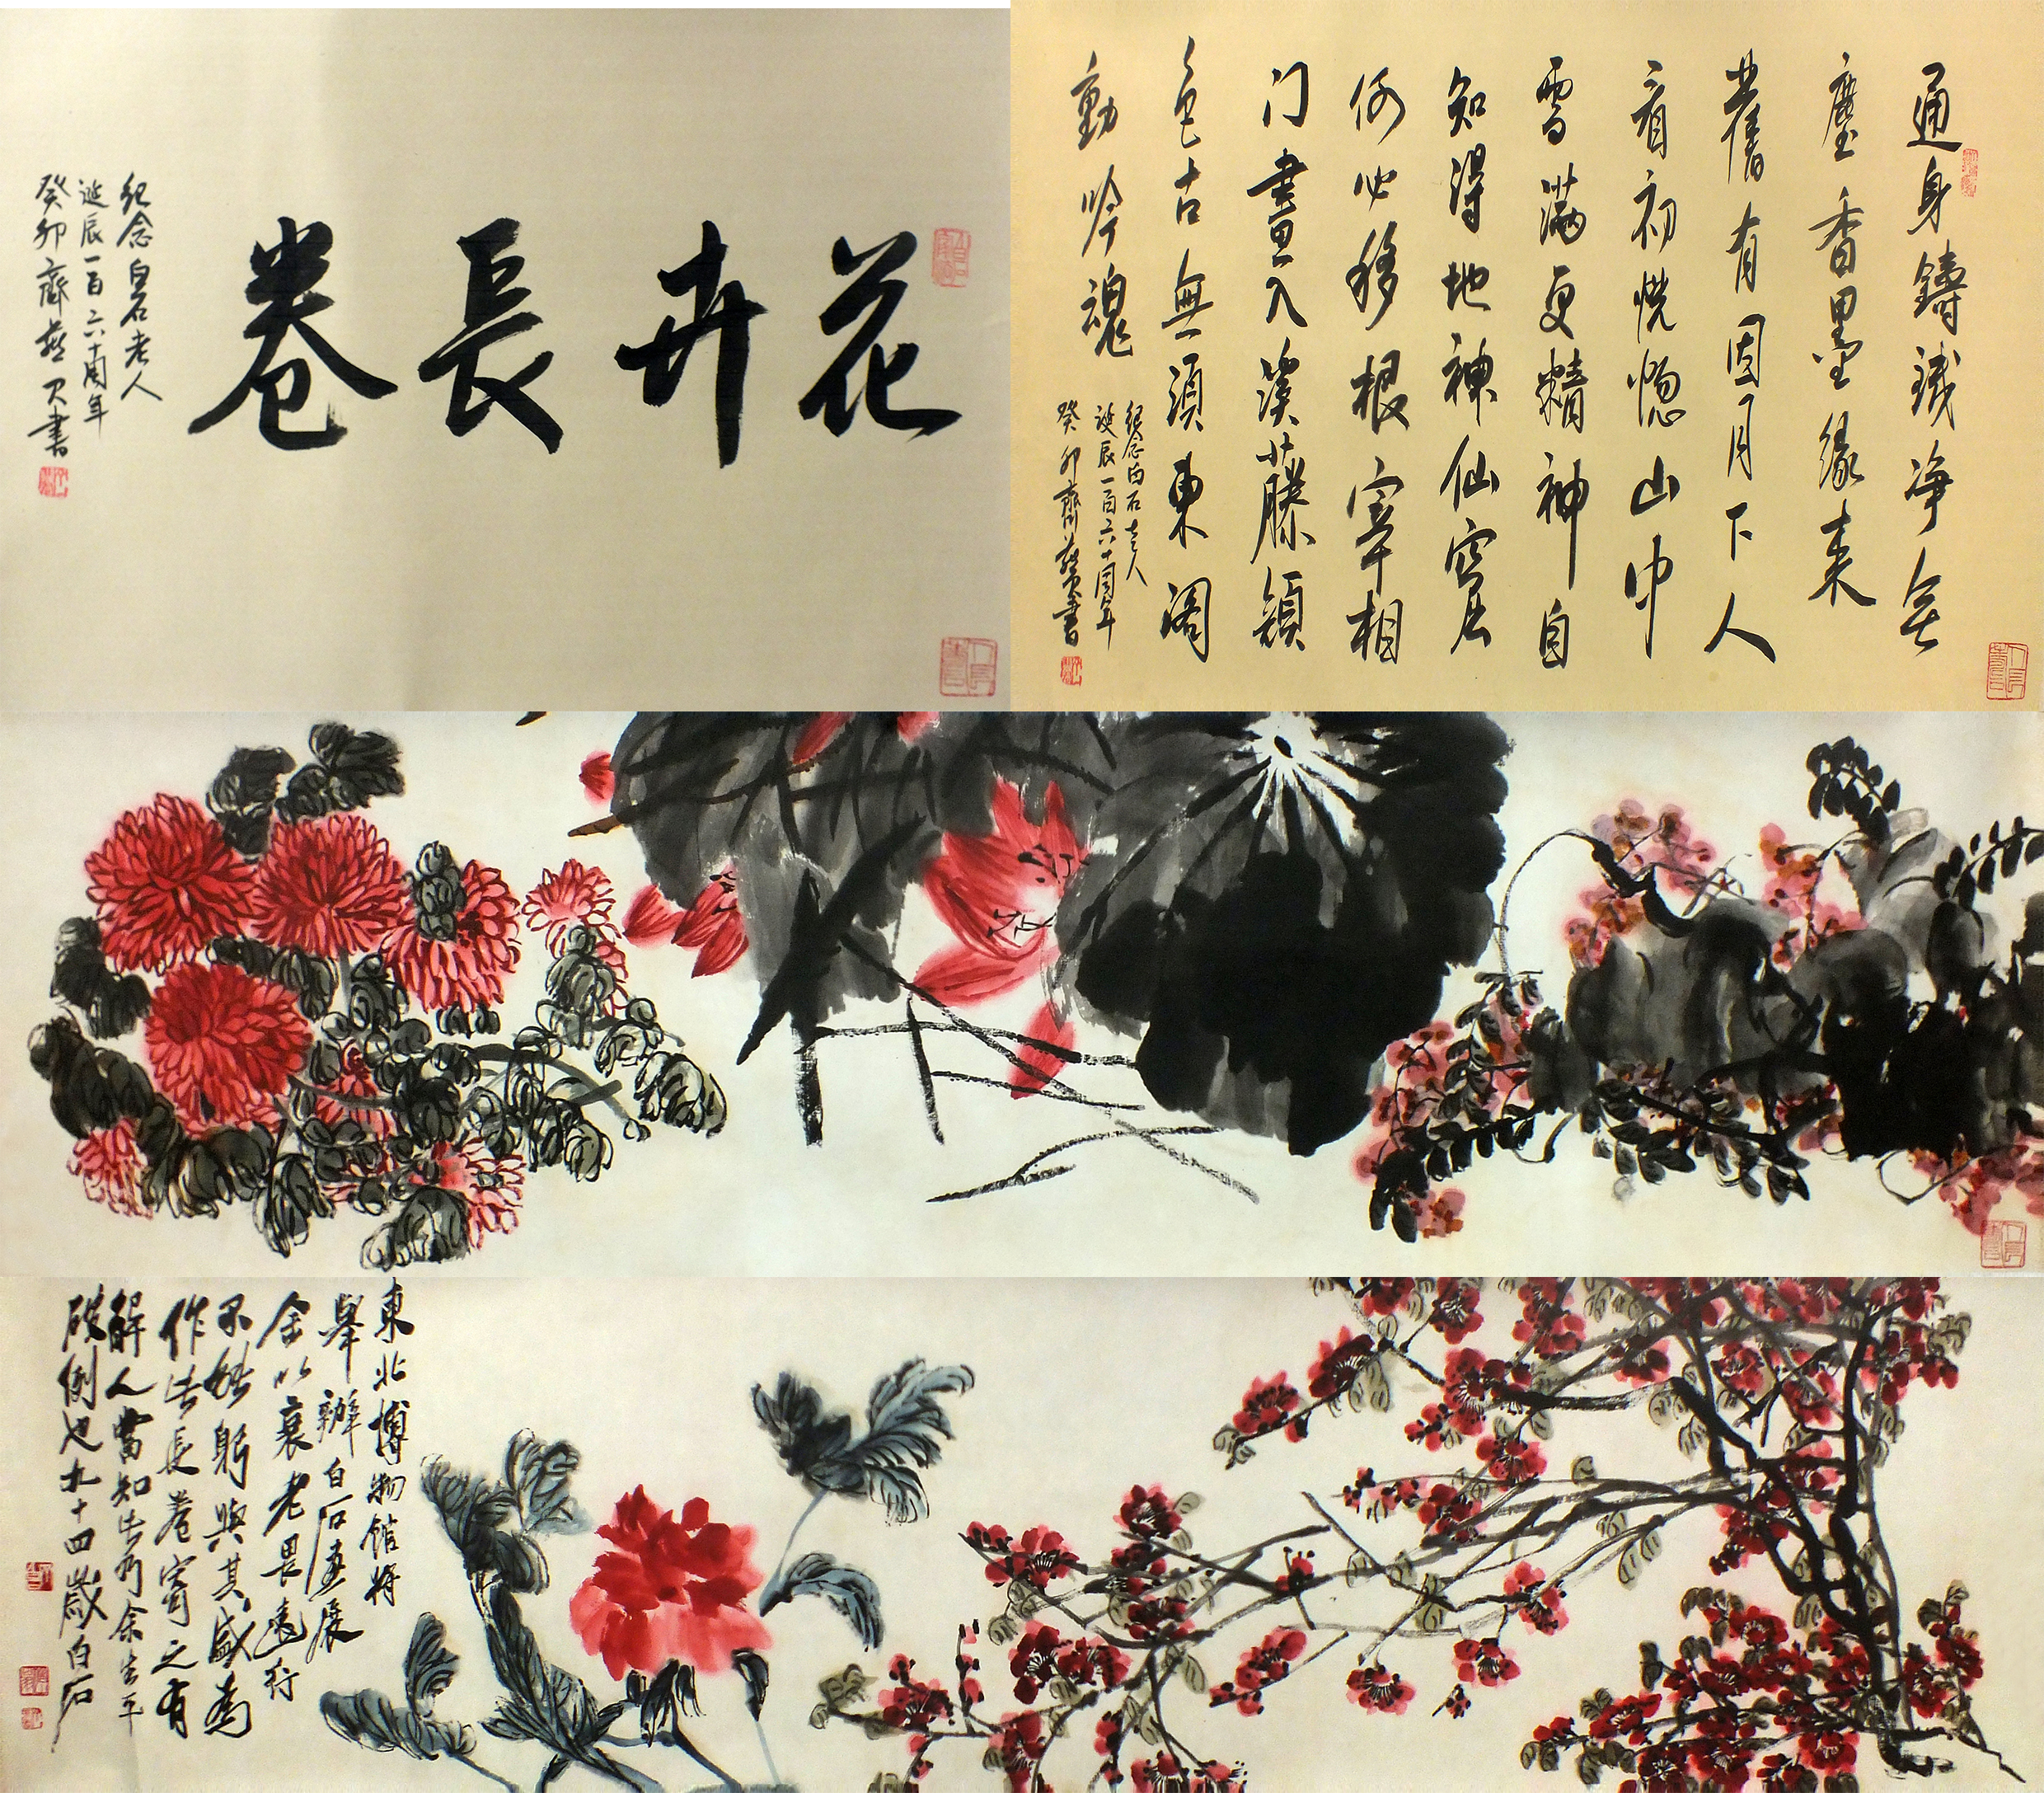 花卉長卷
紀念白石老人
誕辰一百六十周年
癸卯齊燕書
通身鑄鐵净無
塵香墨緣来
舊有因月下人
看初恍惚山中
雪滿更精神自
知得地神仙窟
何必移根宰相
门畫入溪藤顏
色古無須東阁
動吟魂
紀念白石老人
誕辰一百六十周年
癸卯齊燕書
東北博物館将
舉辦白石畫展
余以衰老畏遠行
不能躬與其盛為
作此長卷寄之有
解人當知此乃余生平
破例也九十四歲白石